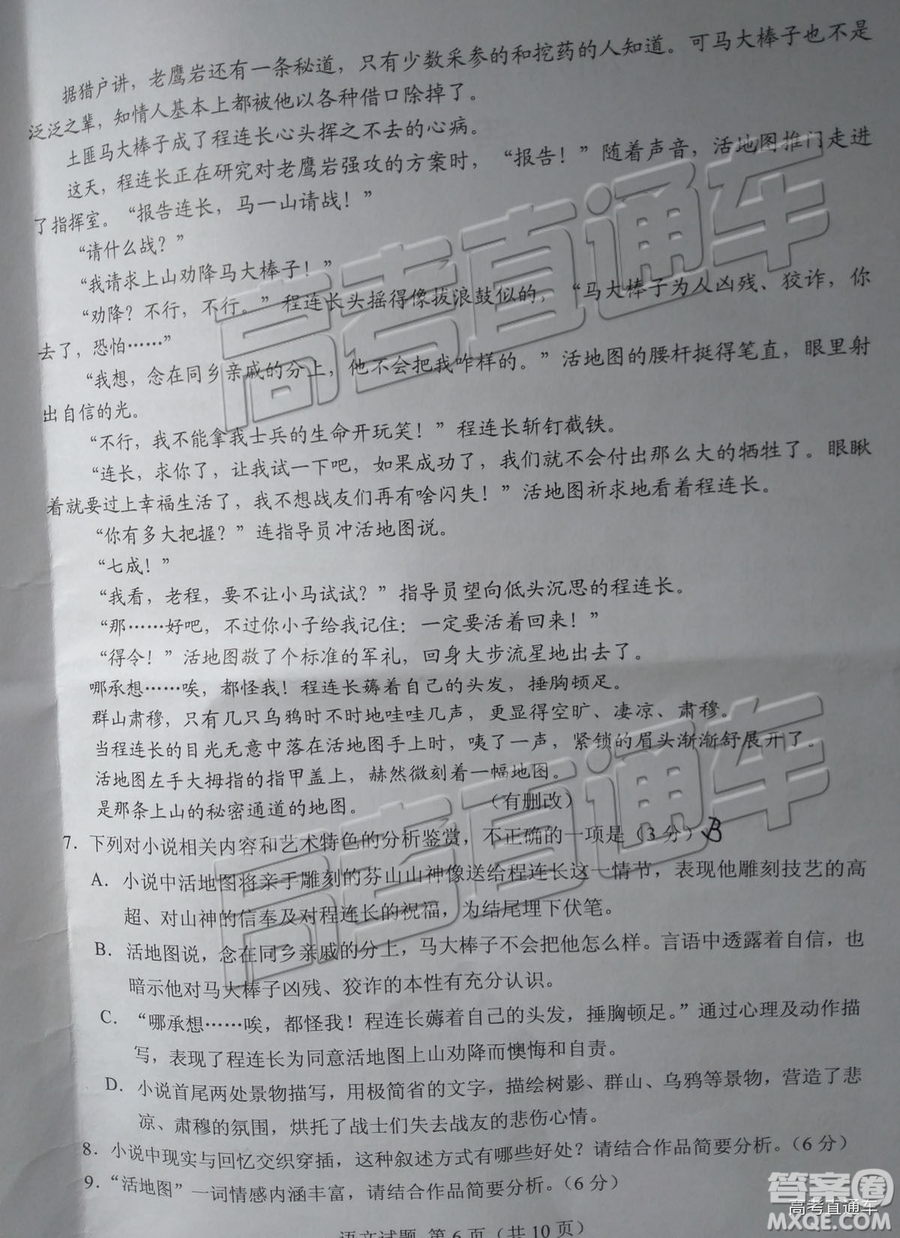 据猎户讲，老鹰岩还有一条秘道，只有少数采参的和挖药的人知道。可马大棒子也不是
泛泛之辈，知情人基本上都被他以各种借口除掉了。
土匪马大棒子成了程连长心头挥之不去的心病。
这天，程连长正在研究对老鹰岩强攻的方案时，“报告！”随着声音，活地图推门走进
了指挥室。“报告连长，马一山请战！”
“请什么战？”
“我请求上山劝降马大棒子！”
“劝降？不行，不行。”程连长头摇得像拔浪鼓似的，“马大棒子为人凶残、狡诈，你
去了，恐怕……”
“我想，念在同乡亲戚的分上，他不会把我咋样的。”活地图的腰杆挺得笔直，眼里射
出自信的光。
“不行，我不能拿我士兵的生命开玩笑！”程连长斩钉截铁。
“连长，求你了，让我试一下吧，如果成功了，我们就不会付出那么大的牺牲了。眼瞅
着就要过上幸福生活了，我不想战友们再有啥闪失！”活地图祈求地看着程连长。
“你有多大把握？”连指导员冲活地图说。
“七成！”
“我看，老程，要不让小马试试？”指导员望向低头沉思的程连长。
“那……好吧，不过你小子给我记住：一定要活着回来！”
“得令！”活地图敬了个标准的军礼，回身大步流星地出去了。
哪承想……唉，都怪我！程连长薅着自己的头发，捶胸顿足。
群山肃穆，只有几只乌鸦时不时地哇哇几声，更显得空旷、凄凉、肃穆。
当程连长的目光无意中落在活地图手上时，咦了一声，紧锁的眉头渐渐舒展开了。
活地图左手大拇指的指甲盖上，赫然微刻着一幅地图。
是那条上山的秘密通道的地图。 （有删改）
7．下列对小说相关内容和艺术特色的分析鉴赏，不正确的一项是（3 分）B
A．小说中活地图将亲手雕刻的芬山山神像送给程连长这一情节，表现他雕刻技艺的高
超、对山神的信奉及对程连长的祝福，为结尾埋下伏笔。
B．活地图说，念在同乡亲戚的分上，马大棒子不会把他怎么样。言语中透露着自信，也
暗示他对马大棒子凶残、狡诈的本性有充分认识。
C．“哪承想……唉，都怪我！程连长薅着自己的头发，捶胸顿足。”通过心理及动作描
写，表现了程连长为同意活地图上山劝降而懊悔和自责。
D．小说首尾两处景物描写，用极简省的文字，描绘树影、群山、乌鸦等景物，营造了悲
凉、肃穆的氛围，烘托了战士们失去战友的悲伤心情。
8．小说中现实与回忆交织穿插，这种叙述方式有哪些好处？请结合作品简要分析。（6 分）
9．“活地图”一词情感内涵丰富，请结合作品简要分析。（6 分）
语文试题 第 6 页（共 10 页）
高考直通车
高考直通车
答案圈
高考直通车
MXQE.COM